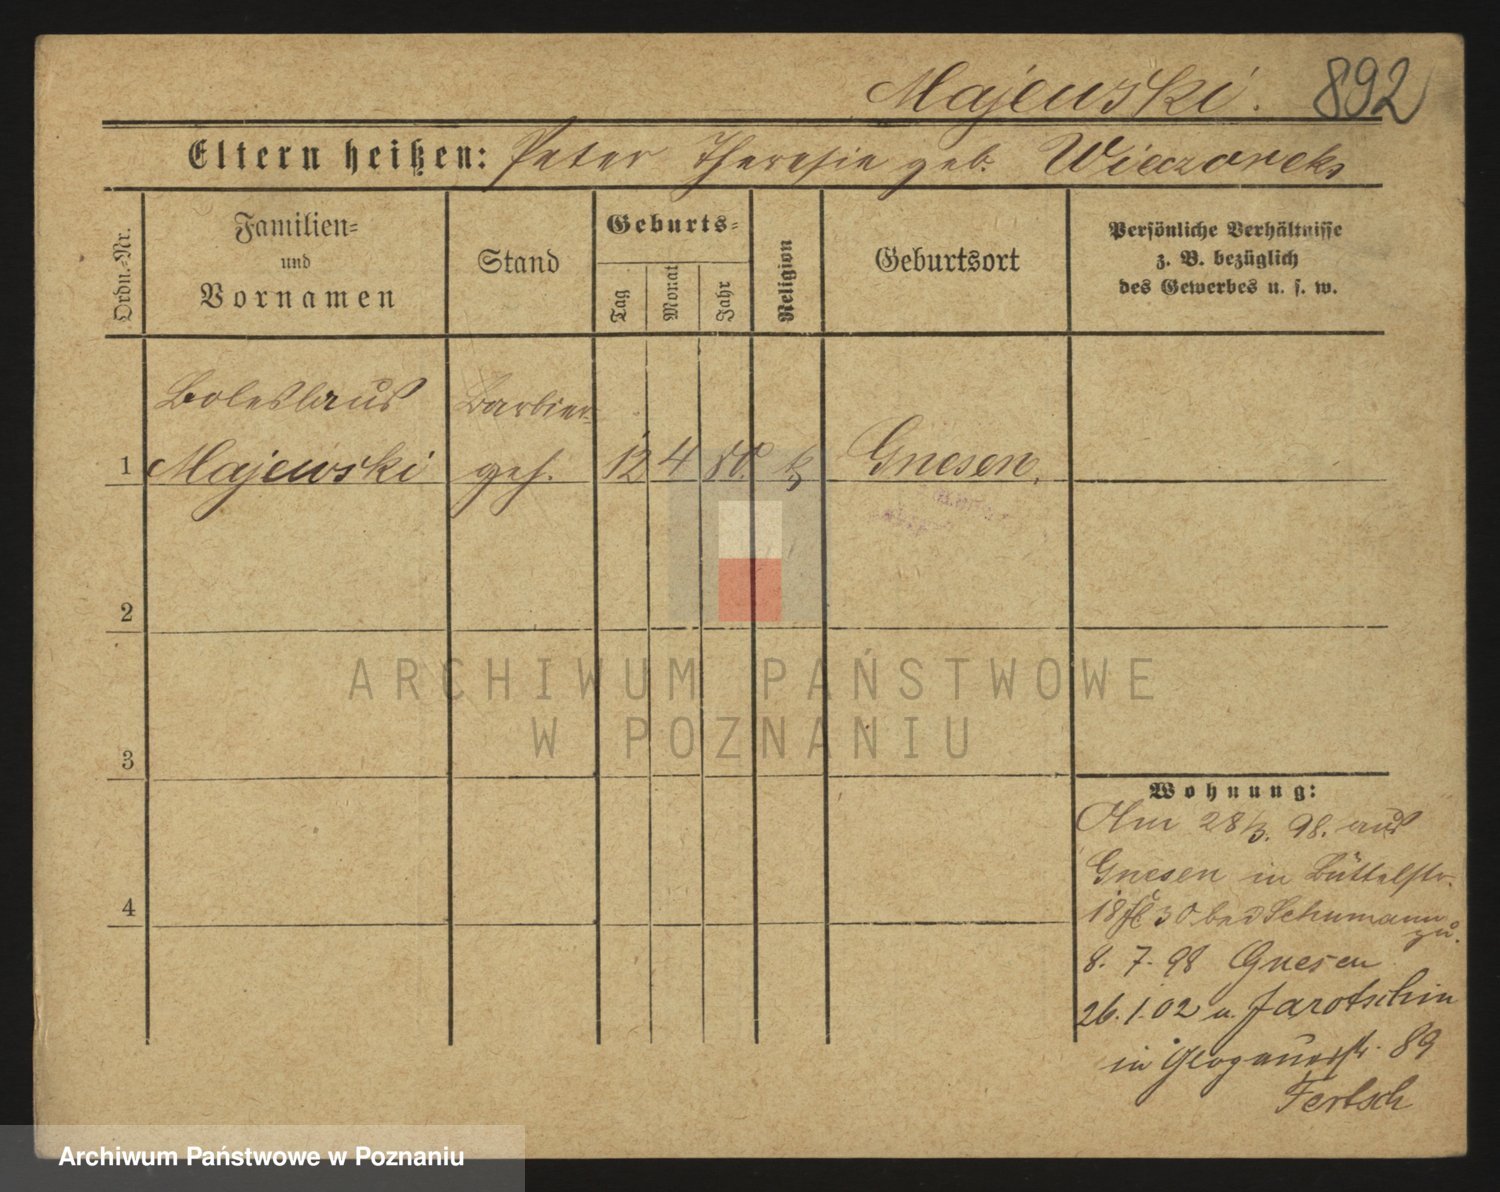 Majewski. 892
Eltern heißen: Peter Theresie geb. Wieczorek
Ordn.-Nr.
Familien-
und
Vornamen
Stand
Geburts-
Tag
Monat
Jahr
Religion
Geburtsort
Persönliche Verhältnisse
z. B. bezüglich
des Gewerbes u. s. w.
Boleslaus Barbier-
1 Majewski geh. 12 4 80. k Gnesen.
2
3
4
Wohnung:
Am 28/3. 98. aus
Gnesen in Büttelstr.
18 30 bei Schumann
zu.
8. 7. 98 Gnesen
26. 1. 02 v. Jarotschin
in Glogauerstr. 89
Fertsch
ARCHIWUM PAŃSTWOWE
W POZNANIU
Archiwum Państwowe w Poznaniu